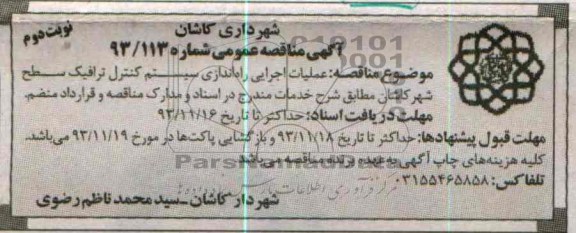 نوبت دوم
شهرداری کاشان
آگهی مناقصه عمومی شماره ۹۳/۱۱۳
موضوع مناقصه: عملیات اجرایی راه اندازی سیستم کنترل ترافیک سطح
شهر کاشان مطابق شرح خدمات مندرج در اسناد و مدارک مناقصه و قرارداد منضم.
مهلت دریافت اسناد: حداکثر تا تاریخ ۹۳/۱۱/۱۶
مهلت قبول پیشنهادها: حداکثر تا تاریخ ۹۳/۱۱/۱۸ و بازگشایی پاکت‌ها در مورخ ۹۳/۱۱/۱۹ می‌باشد.
کلیه هزینه‌های چاپ آگهی به عهده برنده مناقصه می‌باشد
تلفاکس: ۰۳۱۵۵۴۶۵۸۵۸
شهردار کاشان - سید محمد ناظم رضوی